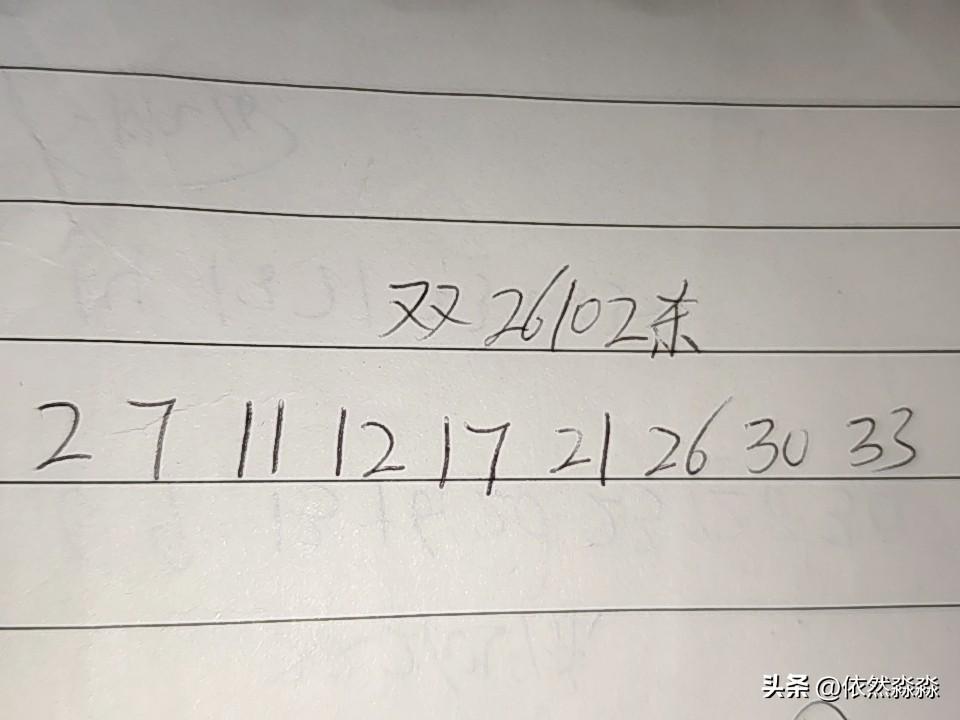 双26102杀
2 7 11 12 17 21 26 30 33
头条 @依然淼淼